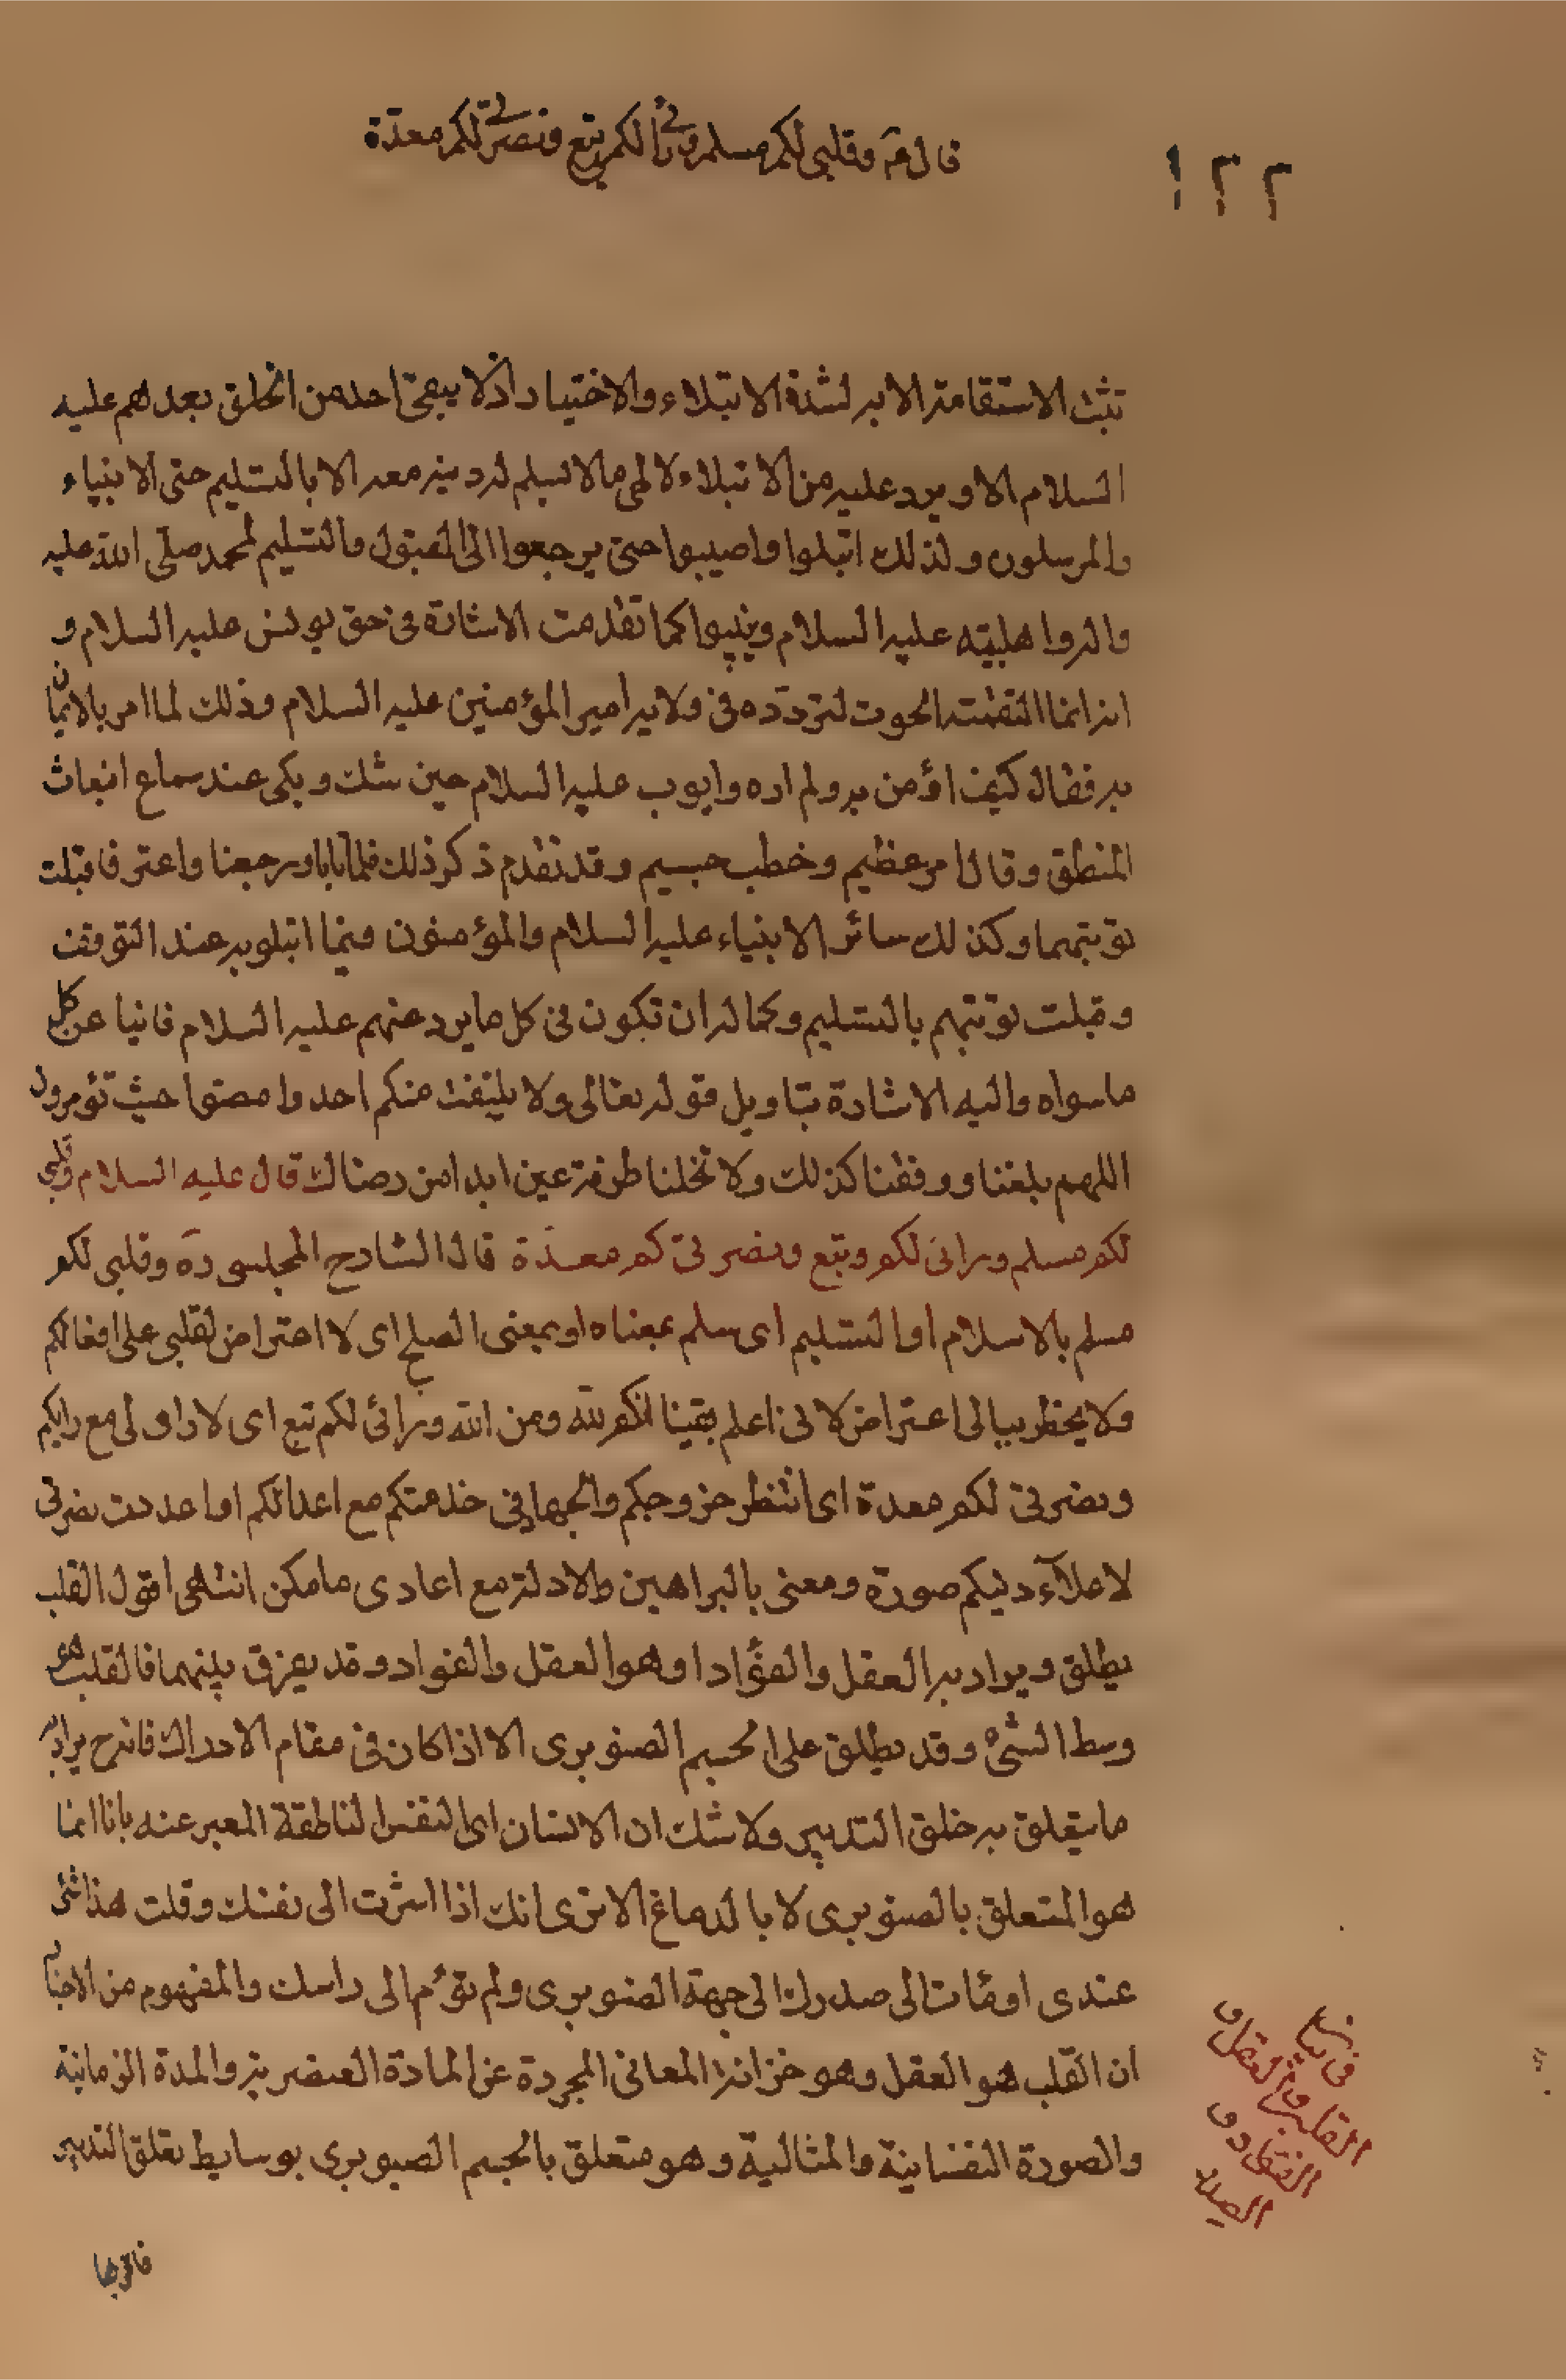 قال ع وقلبى لكم مسلم ورأيى لكم تبع ونصرتى لكم معدّة
١٢٢
تثبت الاستقامة الا به لشدة الابتلاء والاختبار اذ لا يبقى احد من الخلق بعدهم عليه
السلام الا ويرد عليه من الابتلاء الالهى ما لا يسلم له دينه معه الا بالتسليم حتى الانبياء
والمرسلون ولذلك ابتلوا واصيبوا حتى يرجعوا الى القبول والتسليم لمحمد صلى الله عليه
واله واهلبيته عليه السلام وينيبوا كما تقدمت الاشارة فى حق يونس عليه السلام و
انه انما التقمته الحوت لتردّده فى ولاية امير المؤمنين عليه السلام وذلك لما امر بالايمان
به فقال كيف اؤمن به ولم اره وايوب عليه السلام حين شك وبكى عند سماع انبعاث
المنطق وقال امر عظيم وخطب جسيم وقد تقدم ذكر ذلك فلما تابا ورجعنا واعترفا قبلت
توبتهما وكذلك سائر الانبياء عليه السلام والمؤمنون فيما ابتلوا به عند التوقف
وقبلت توبتهم بالتسليم وكماله ان تكون فى كل ما يرد عنهم عليه السلام فانيا عن كل
ما سواه واليه الاشارة بتاويل قوله تعالى ولا يلتفت منكم احد وامضوا حيث تؤمرون
اللهم بلغنا ووفقنا كذلك ولا تخلنا طرفة عين ابدا من رضاك قال عليه السلام وقلبى
لكم مسلم ورائى لكم تبع ونصرتى لكم معدّة قال الشارح المجلسى ره وقلبى لكم
مسلم بالاسلام او التسليم اى سلم بمعناه او بمعنى الصلح اى لا اعتراض لقلبى على افعالكم
ولا يخطر ببالى اعتراض لانى اعلم يقينا انكم لله ومن الله ورائى لكم تبع اى لا راى لى مع رايكم
ونصرتى لكم معدة اى انتظر خروجكم والجهاد فى خدمتكم مع اعدائكم او اعددت نصرتى
لاعلاء دينكم صورة ومعنى بالبراهين والادلة مع اعادى ما امكن انتهى اقول القلب
يطلق ويراد به العقل والفؤاد او هو العقل والفواد وقد يفرق بينهما فالقلب هو
وسط الشئ وقد يطلق على الجسم الصنوبرى الا اذا كان فى مقام الادراك فانه ح يراد به
ما يتعلق به خلق التدبير ولا شك ان الانسان اى النفس الناطقة المعبر عنه بانا انما
هو المتعلق بالصنوبرى لا بالدماغ الا ترى انك اذا اشرت الى نفسك وقلت هذا شئ
عندى اومأت الى صدرك الى جهة الصنوبرى ولم تؤم الى راسك والمفهوم من الاخبار
ان القلب هو العقل وهو خزانة المعانى المجردة عن المادة العنصرية والمدة الزمانية
والصورة النفسانية والمثالية وهو متعلق بالجسم الصنوبرى بوسايط تعلق التدبير
فى بيان
القلب والعقل و
الفؤاد و
الصدر